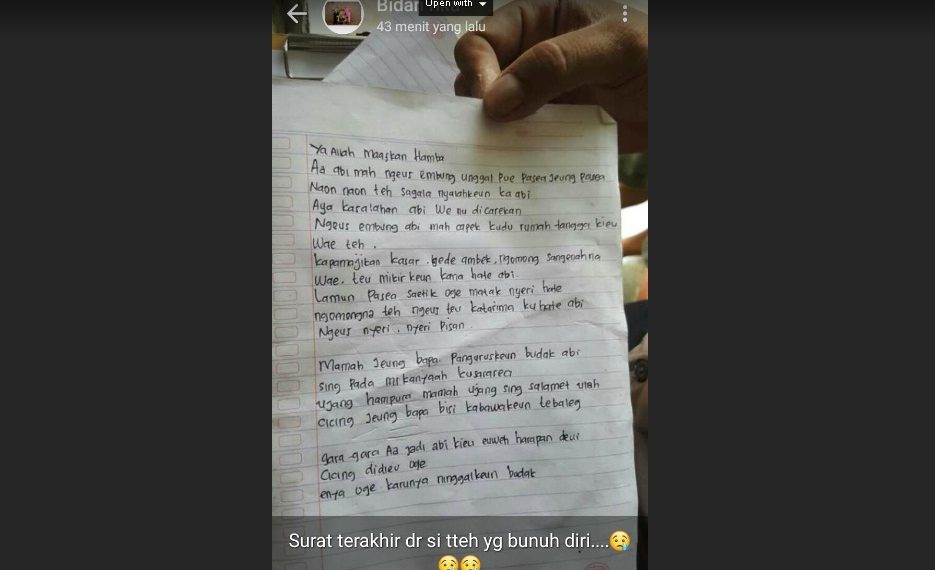 Bidan
Open with
43 menit yang lalu
Ya Allah maafkan Hamba
Aa abi mah ngeus embung unggal Poe Pasea Jeung Pasea
Naon naon teh sagala nyalahkeun ka abi
Aya kasalahan abi We nu dicarekan
Ngeus embung abi mah capek kudu rumah tangga kieu
Wae teh.
kapamajikan kasar. gede ambek, ngomong sangenahna
Wae. teu mikirkeun kana hate abi
Lamun Pasea saetik oge matak nyeri hate
ngomongna teh ngeus teu katarima ku hate abi
Ngeus nyeri. nyeri Pisan.
Mamah Jeung bapa. Panguruskeun budak abi
sing Pada mikanyaah
ujang hampura mamah ujang sing salamet ulah
cicing Jeung bapa bisi kabawakeun tebaleg
gara gara Aa jadi abi kieu euweh harapan deui
Cicing didieu oge
enya oge karunya ninggalkeun budak
Surat terakhir dr si tteh yg bunuh diri....😢
😢😢